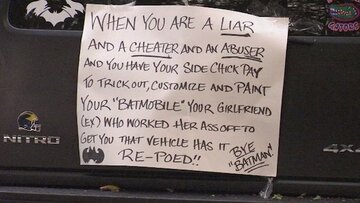 WHEN YOU ARE A LIAR
AND A CHEATER AND AN ABUSER
AND YOU HAVE YOUR SIDE CHICK PAY
TO TRICK OUT, CUSTOMIZE AND PAINT
YOUR "BATMOBILE" YOUR GIRLFRIEND
(EX) WHO WORKED HER ASS OFF TO
GET YOU THAT VEHICLE HAS IT
RE-POED!!
BYE
"BATMAN."
NITRO
4x4
GATORS